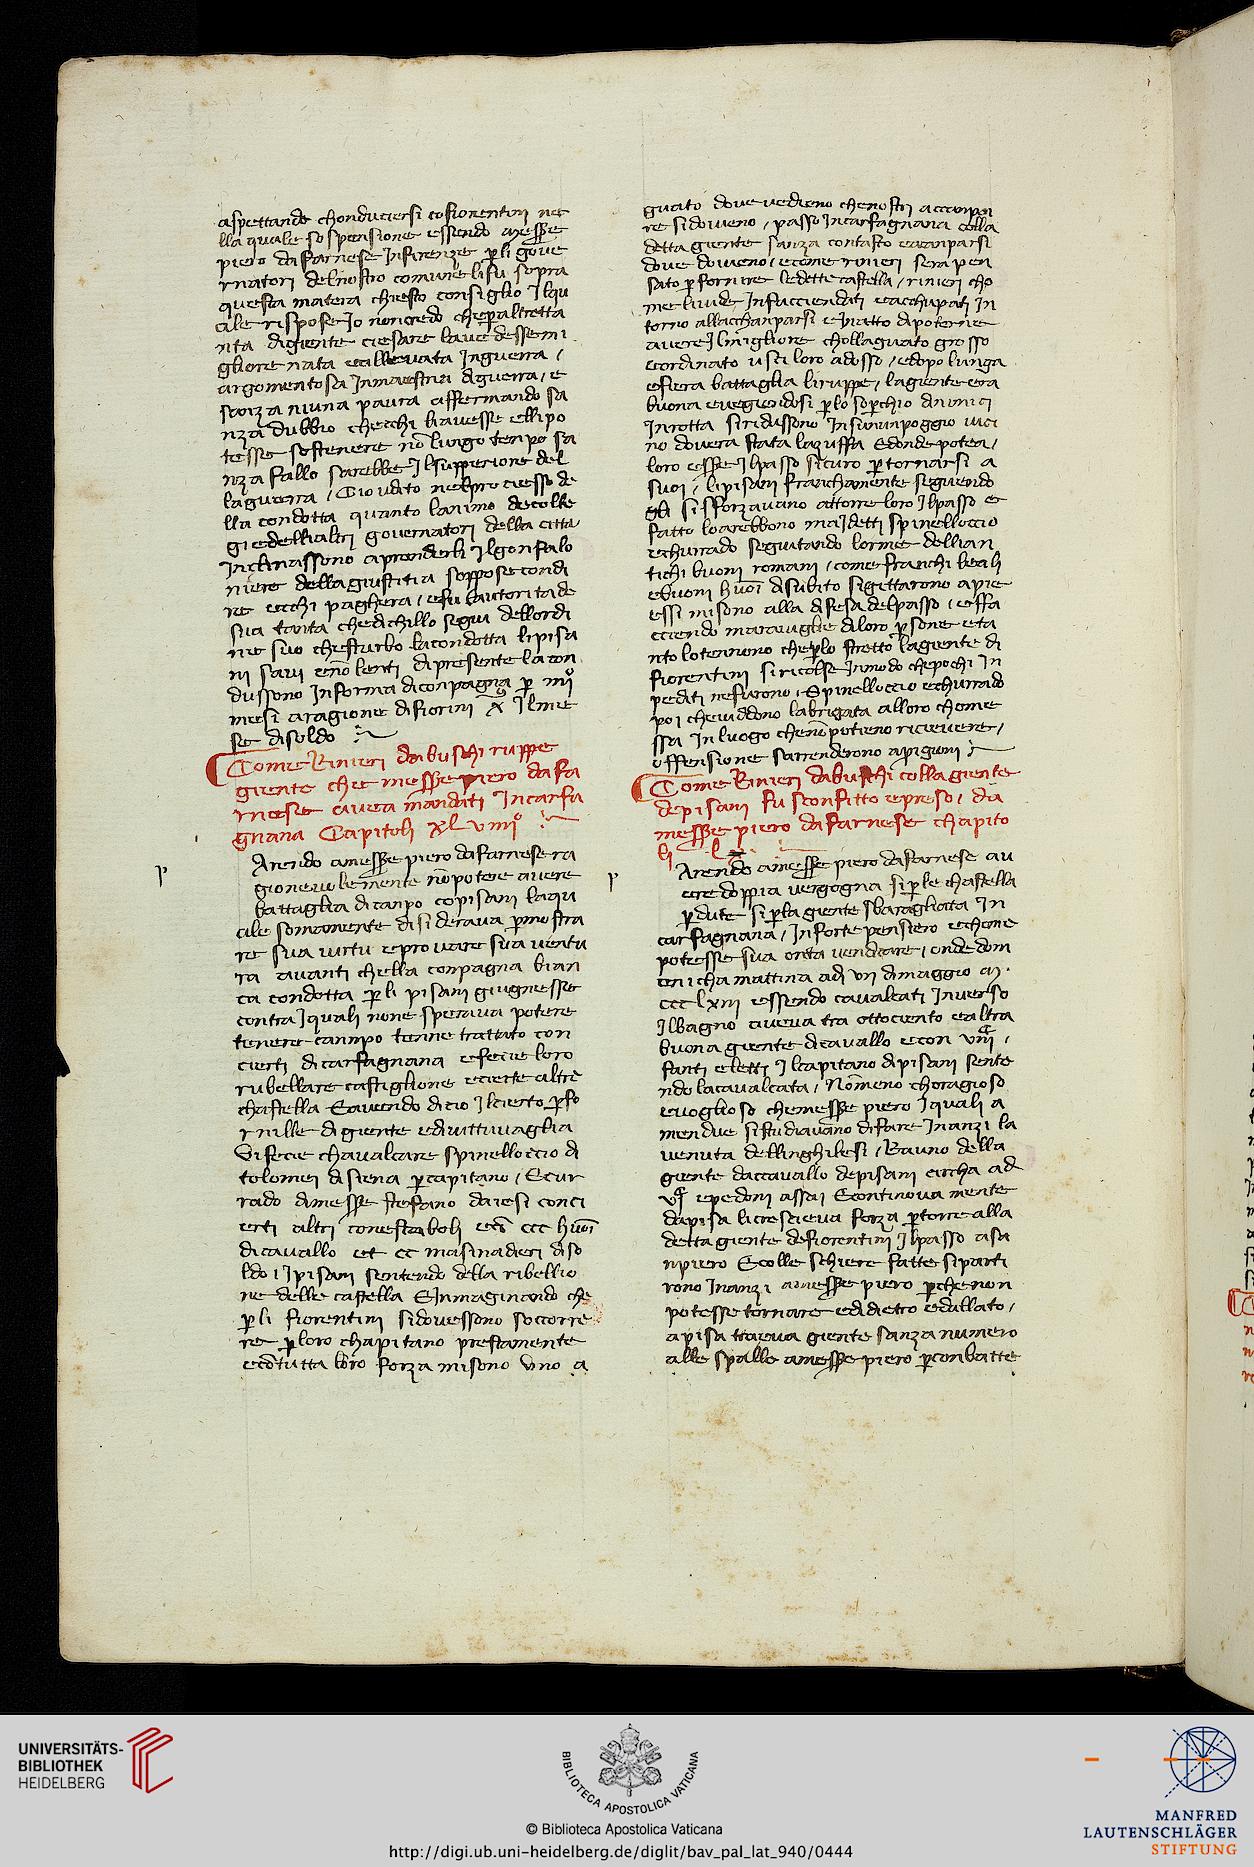 aspettando chonduciersi cofiorentini ne
lla quale sospensione essendo messẽ
piero dafarnese Infirenze ꝑli gove
rnatori delnostro comune lifu sopra
questa matera chiesto consiglio Ilqu
ale rispose Io noncredo cheperaltretta
nta digiente ciesare lavedesse mi
gliore nata eallevata Inguerra /
argomentosa Inmaestria diguerra / e
sanza niuna paura affermando sa
nza dubbio chechi lavesse ellipo
tesse sostenere nõ lungo tenpo sa
nza fallo sarebbe Ilsupperiore del
laguerra / Eiovdito nelprociesso de
lla condotta quanto lanimo decolle
giedellialtri governatori della citta
Inchinassono aprenderli Ilgonfalo
niere dellagiustitia soppose condi
re echi paghera / efu lautorita de
sua tanta chedichillo segui dellordi
ne suo chesturbo lacondotta lipisa
ni savi enõ lenti dipresente lacon
dussono Informa diconpagna ꝑ iiiiº
mesi aragione difiorini x̃ Ilme
se disoldo
Come Rinieri dabuschi ruppe
giente che messẽ piero dafa
rnese aveva mandati Incarfa
gnana Capitoli XLviiiiº
Avendo amessẽ piero dafarnese ra
gionevolemente nõpotere avere
battaglia dicanpo copisani laqu
ale somamente disiderava ꝑmostra
re sua virtu eprovare sua ventu
ra avanti chella conpagna bian
ca condotta ꝑli pisani giugnesse
contra Iquali none sperava potere
tenere canpo tenne trattato con
cierti dicarfagnana efecie loro
rubellare castiglione ecierte altre
chastella Eavendo dicio Ilcierto ꝑfo
rnille digiente edivittuvaglia
vifecie chavalcare spinelloccio di
tolomei disiena ꝑcapitano / Ecur
rado dimesse stefano daiesi conci
erti altri conestaboli ecõ ccc huoĩ
dicavallo et cc masinadieri diso
ldo i Ipisani sentendo della ribellio
ne delle castella EInmaginando che
ꝑli fiorentini sidovessono soccorre
re ꝑloro chapitano prestamente
ecõtutta loro forza misono vno a
guato dovevedieno chenostri accanpa
re sidoveno / passo Incarfagnana colla
detta giente sanza contasto eacanparsi
dove doveano / ecome rinieri sera pen
sato ꝑfornire ledette castella / rinieri cho
me livide Infacciendati eacchupati In
torno allacchanparsi eInatto dipoterne
avere Ilmigliore chollaguato grosso
eordinato usci loro adosso / edopo lunga
efiera battaglia liruppe / lagiente era
buona evegiendosi ꝑlo soperchio dinimici
Inrotta siridussono Insununpoggio vici
no dovera stata lazuffa Edonde potea /
loro essere Ilpasso sicuro ꝑtornarsi a
suoi / lipisani franchamente seguendo
gli sisforzavano attorre loro Ilpasso e
fatto loarebbono maIdetti spinelloccio
echurrado seguitando lorme dellian
tichi buoni romani / come franchi leali
ebuoni huoĩ disubito sigittarono apie
essi misono alla difesa delpasso / effa
cciendo maraviglie diloro ꝑsone eta
nto lotennono cheꝑlo stretto lagiente di
fiorentini siricolse Inmodo chepochi In
pediti nefurono / Spinelloccio echurrado
poi cheviddono labrigata alloro chome
ssa In luogo chenõ potieno ricievere /
offensione sarrenderono aprigioni
Come Rinieri dabuschi colla giente
depisani fu sconfitto epreso / da
messẽ piero dafarnese chapito
li L
Avendo amessẽ piero dafarnese av
ere doppia vergogna siꝑle chastella
ꝑdute siꝑla giente sbaragliata In
carfagnana / Inforte pensiero echome
potesse sua onta vendicare / onde dom
enicha mattina adi vii dimaggio m.
ccclxiii essendo cavalcati Inverso
Ilbagno aveva tra ottociento ealtra
buona giente dicavallo econ viiiᶜ /
fanti eletti Ilcapitano dipisani sente
ndo lacavalcata / Nõmeno choragioso
evoglioso chemessẽ piero Iquali a
mendue sistudiavano difare Inanzi la
venuta dellinghilesi / Eavuno della
giente daccavallo depisani circha ad
viᶜ epedoni assai Econtinovamente
dapisa licresscieva forza ꝑtorre alla
detta giente defiorentini Ilpasso asa
npiero Ecolle schiere fatte siparti
rono Inanzi amessẽ piero ꝑchenon
potesse tornare edidietro edallato /
apisa traeva giente sanza numero
alle spalle amessẽ piero ꝑconbatte
p
p
UNIVERSITÄTS-
BIBLIOTHEK
HEIDELBERG
BIBLIOTECA APOSTOLICA VATICANA
© Biblioteca Apostolica Vaticana
http://digi.ub.uni-heidelberg.de/diglit/bav_pal_lat_940/0444
MANFRED
LAUTENSCHLÄGER
STIFTUNG